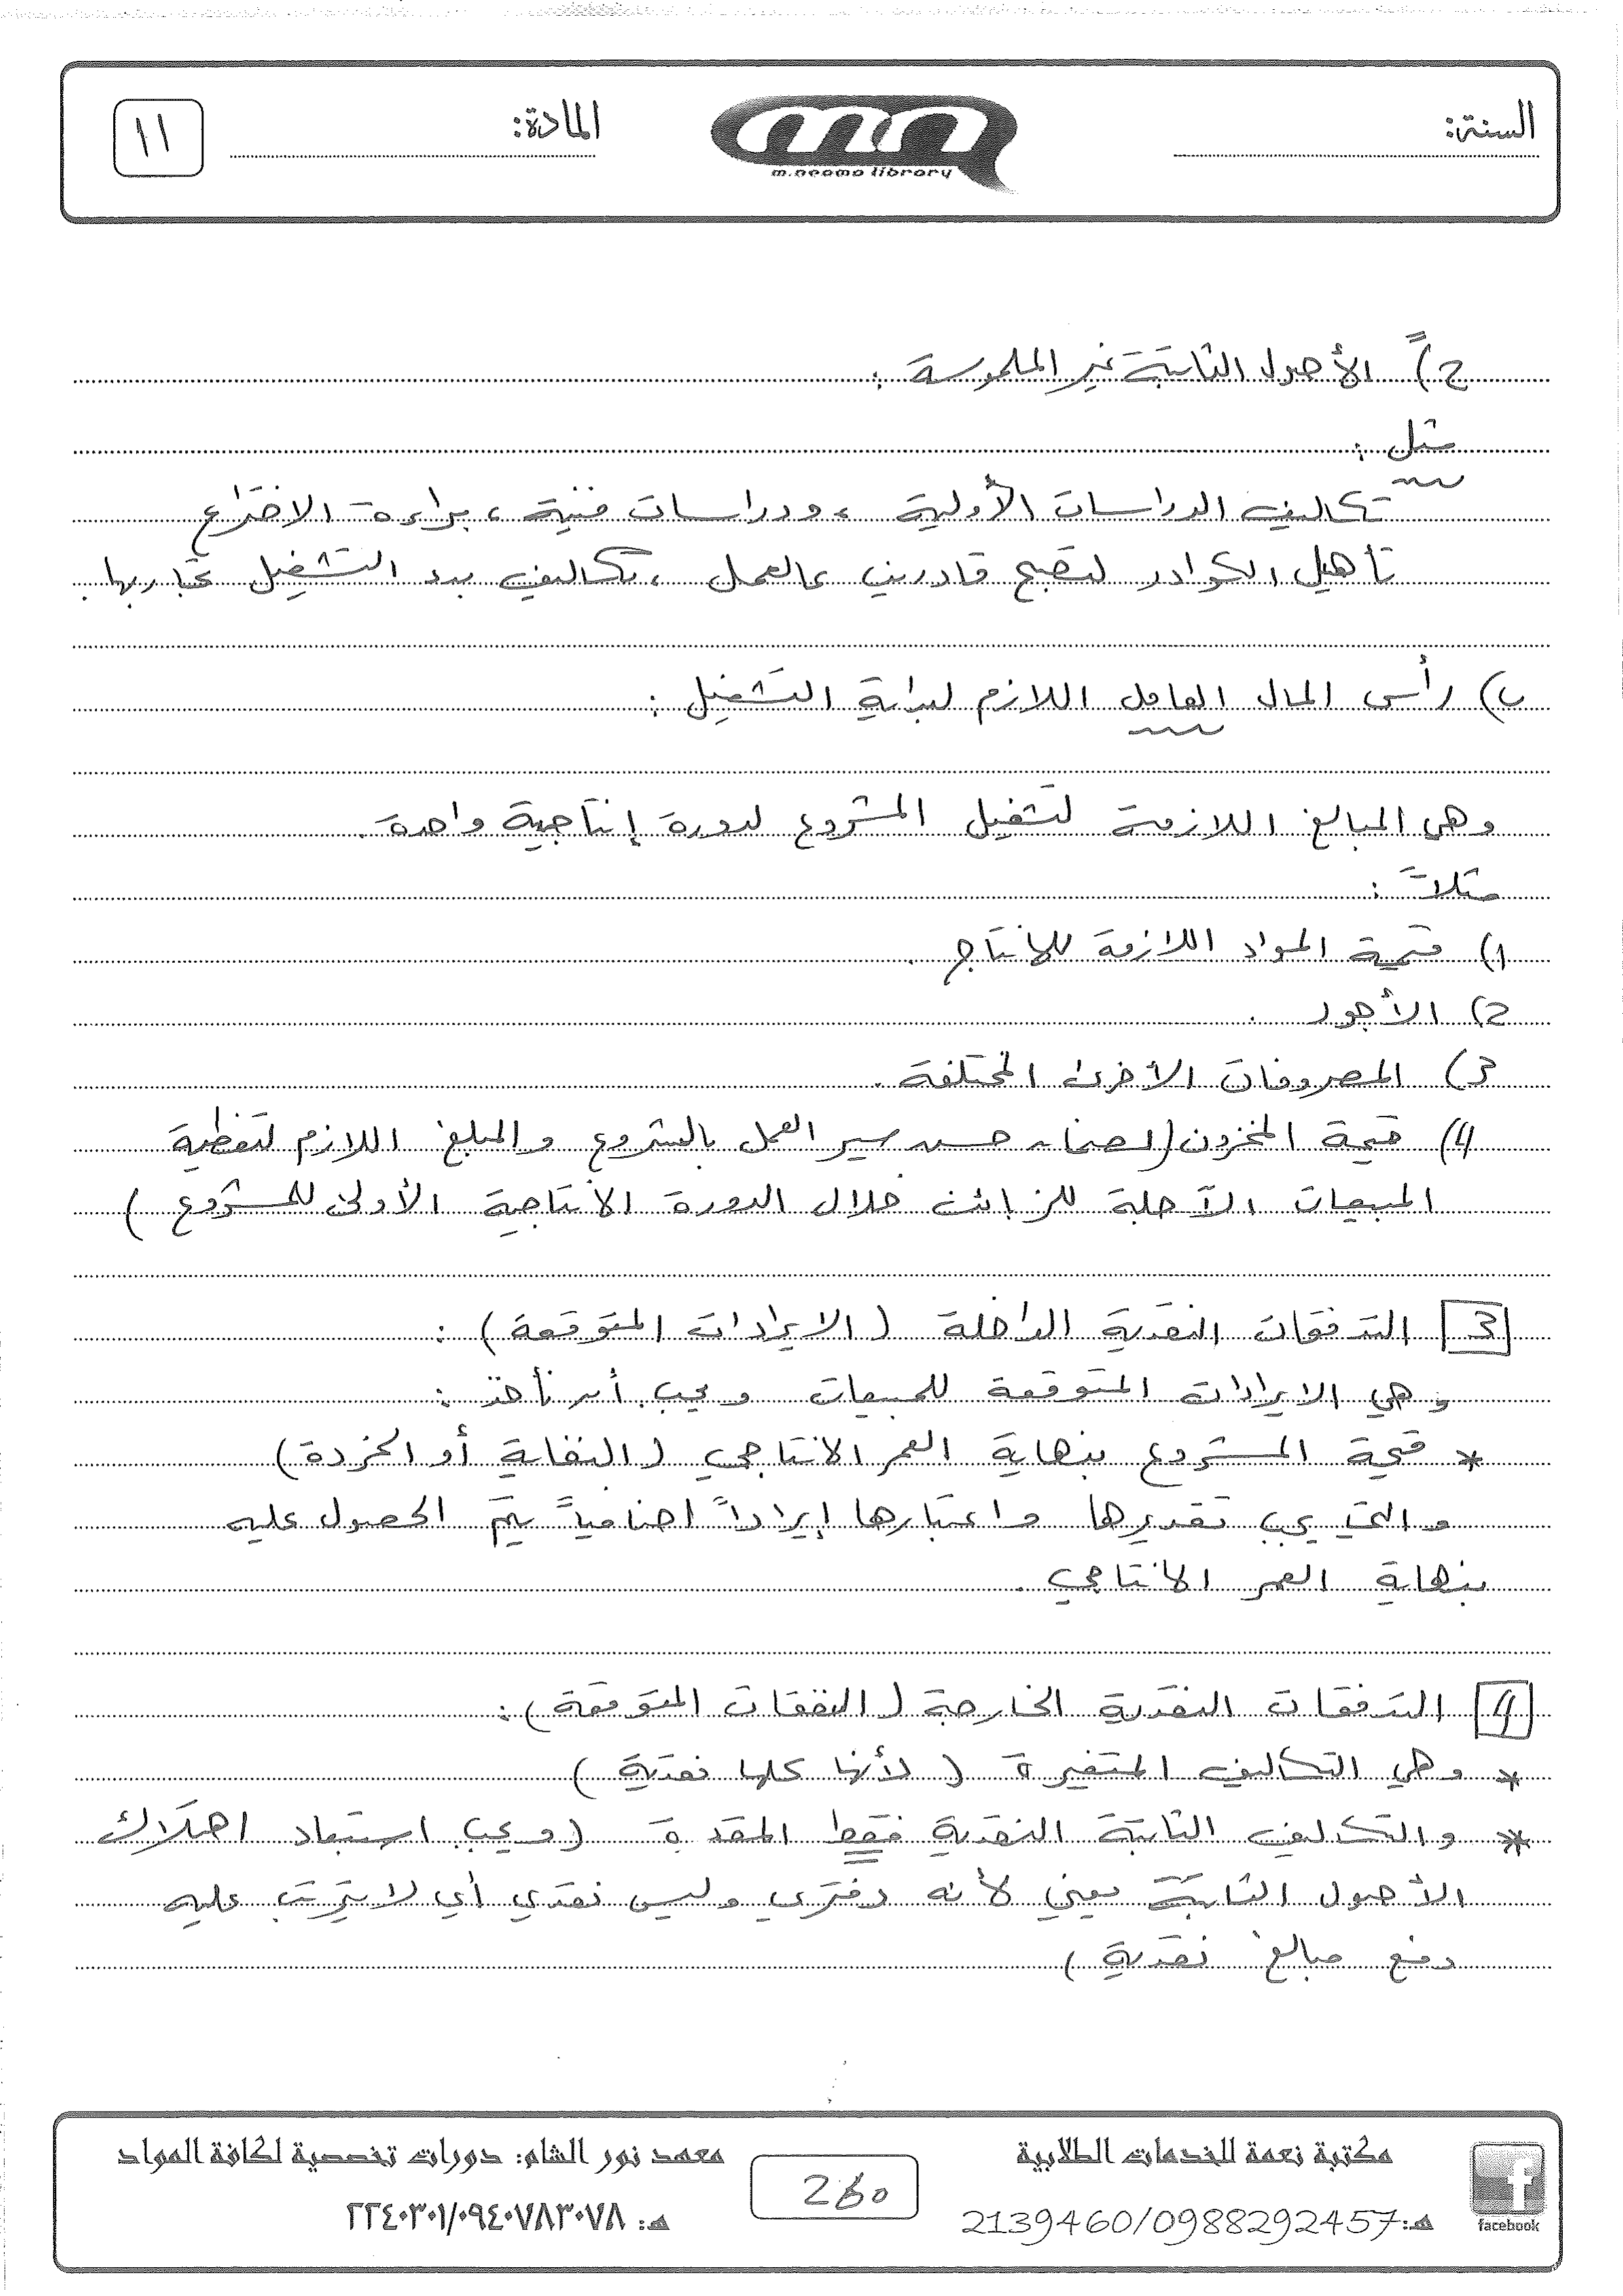 السنة:
m.neama library
المادة:
١١
ج) الأصول الثابتة غير الملموسة :
مثل :
تكاليف الدراسات الأولية ، ودراسات فنية ، براءة الاختراع
تأهيل الكوادر لتصبح قادرين عالعمل ، تكاليف بدء التشغيل تجاربها .
ب) رأس المال العامل اللازم لبداية التشغيل :
وهي المبالغ اللازمة لتشغيل المشروع لدورة إنتاجية واحدة .
مثلاً :
1) قيمة المواد اللازمة للإنتاج .
2) الأجور .
3) المصروفات الأخرى المختلفة .
4) قيمة المخزون ( لضمان حسن سير العمل بالمشروع والمبلغ اللازم لتغطية
المبيعات الآجلة للزبائن خلال الدورة الانتاجية الأولى للمشروع )
3 التدفقات النقدية الداخلة ( الايرادات المتوقعة ) :
وهي الايرادات المتوقعة للمبيعات ويجب أن نأخذ :
* قيمة المشروع بنهاية العمر الانتاجي ( النفاية أو الخردة )
والتي يجب تقديرها واعتبارها إيراداً اضافياً يتم الحصول عليه
بنهاية العمر الانتاجي .
4 التدفقات النقدية الخارجة ( النفقات المتوقعة ) :
* وهي التكاليف المتغيرة ( لأنها كلها نقدية )
* والتكاليف الثابتة النقدية فقط المقدرة ( ويجب استبعاد اهتلاك
الأصول الثابتة يعني لأنه دفتري وليس نقدي أي لا يترتب عليه
دفع مبالغ نقدية )
facebook
مكتبة نعمة للخدمات الطلابية
هـ: 2139460/0988292457
معهد نور الشام: دورات تخصصية لكافة المواد
هـ: ٢٢٤٠٣٠١/٠٩٤٠٧٨٣٠٧٨